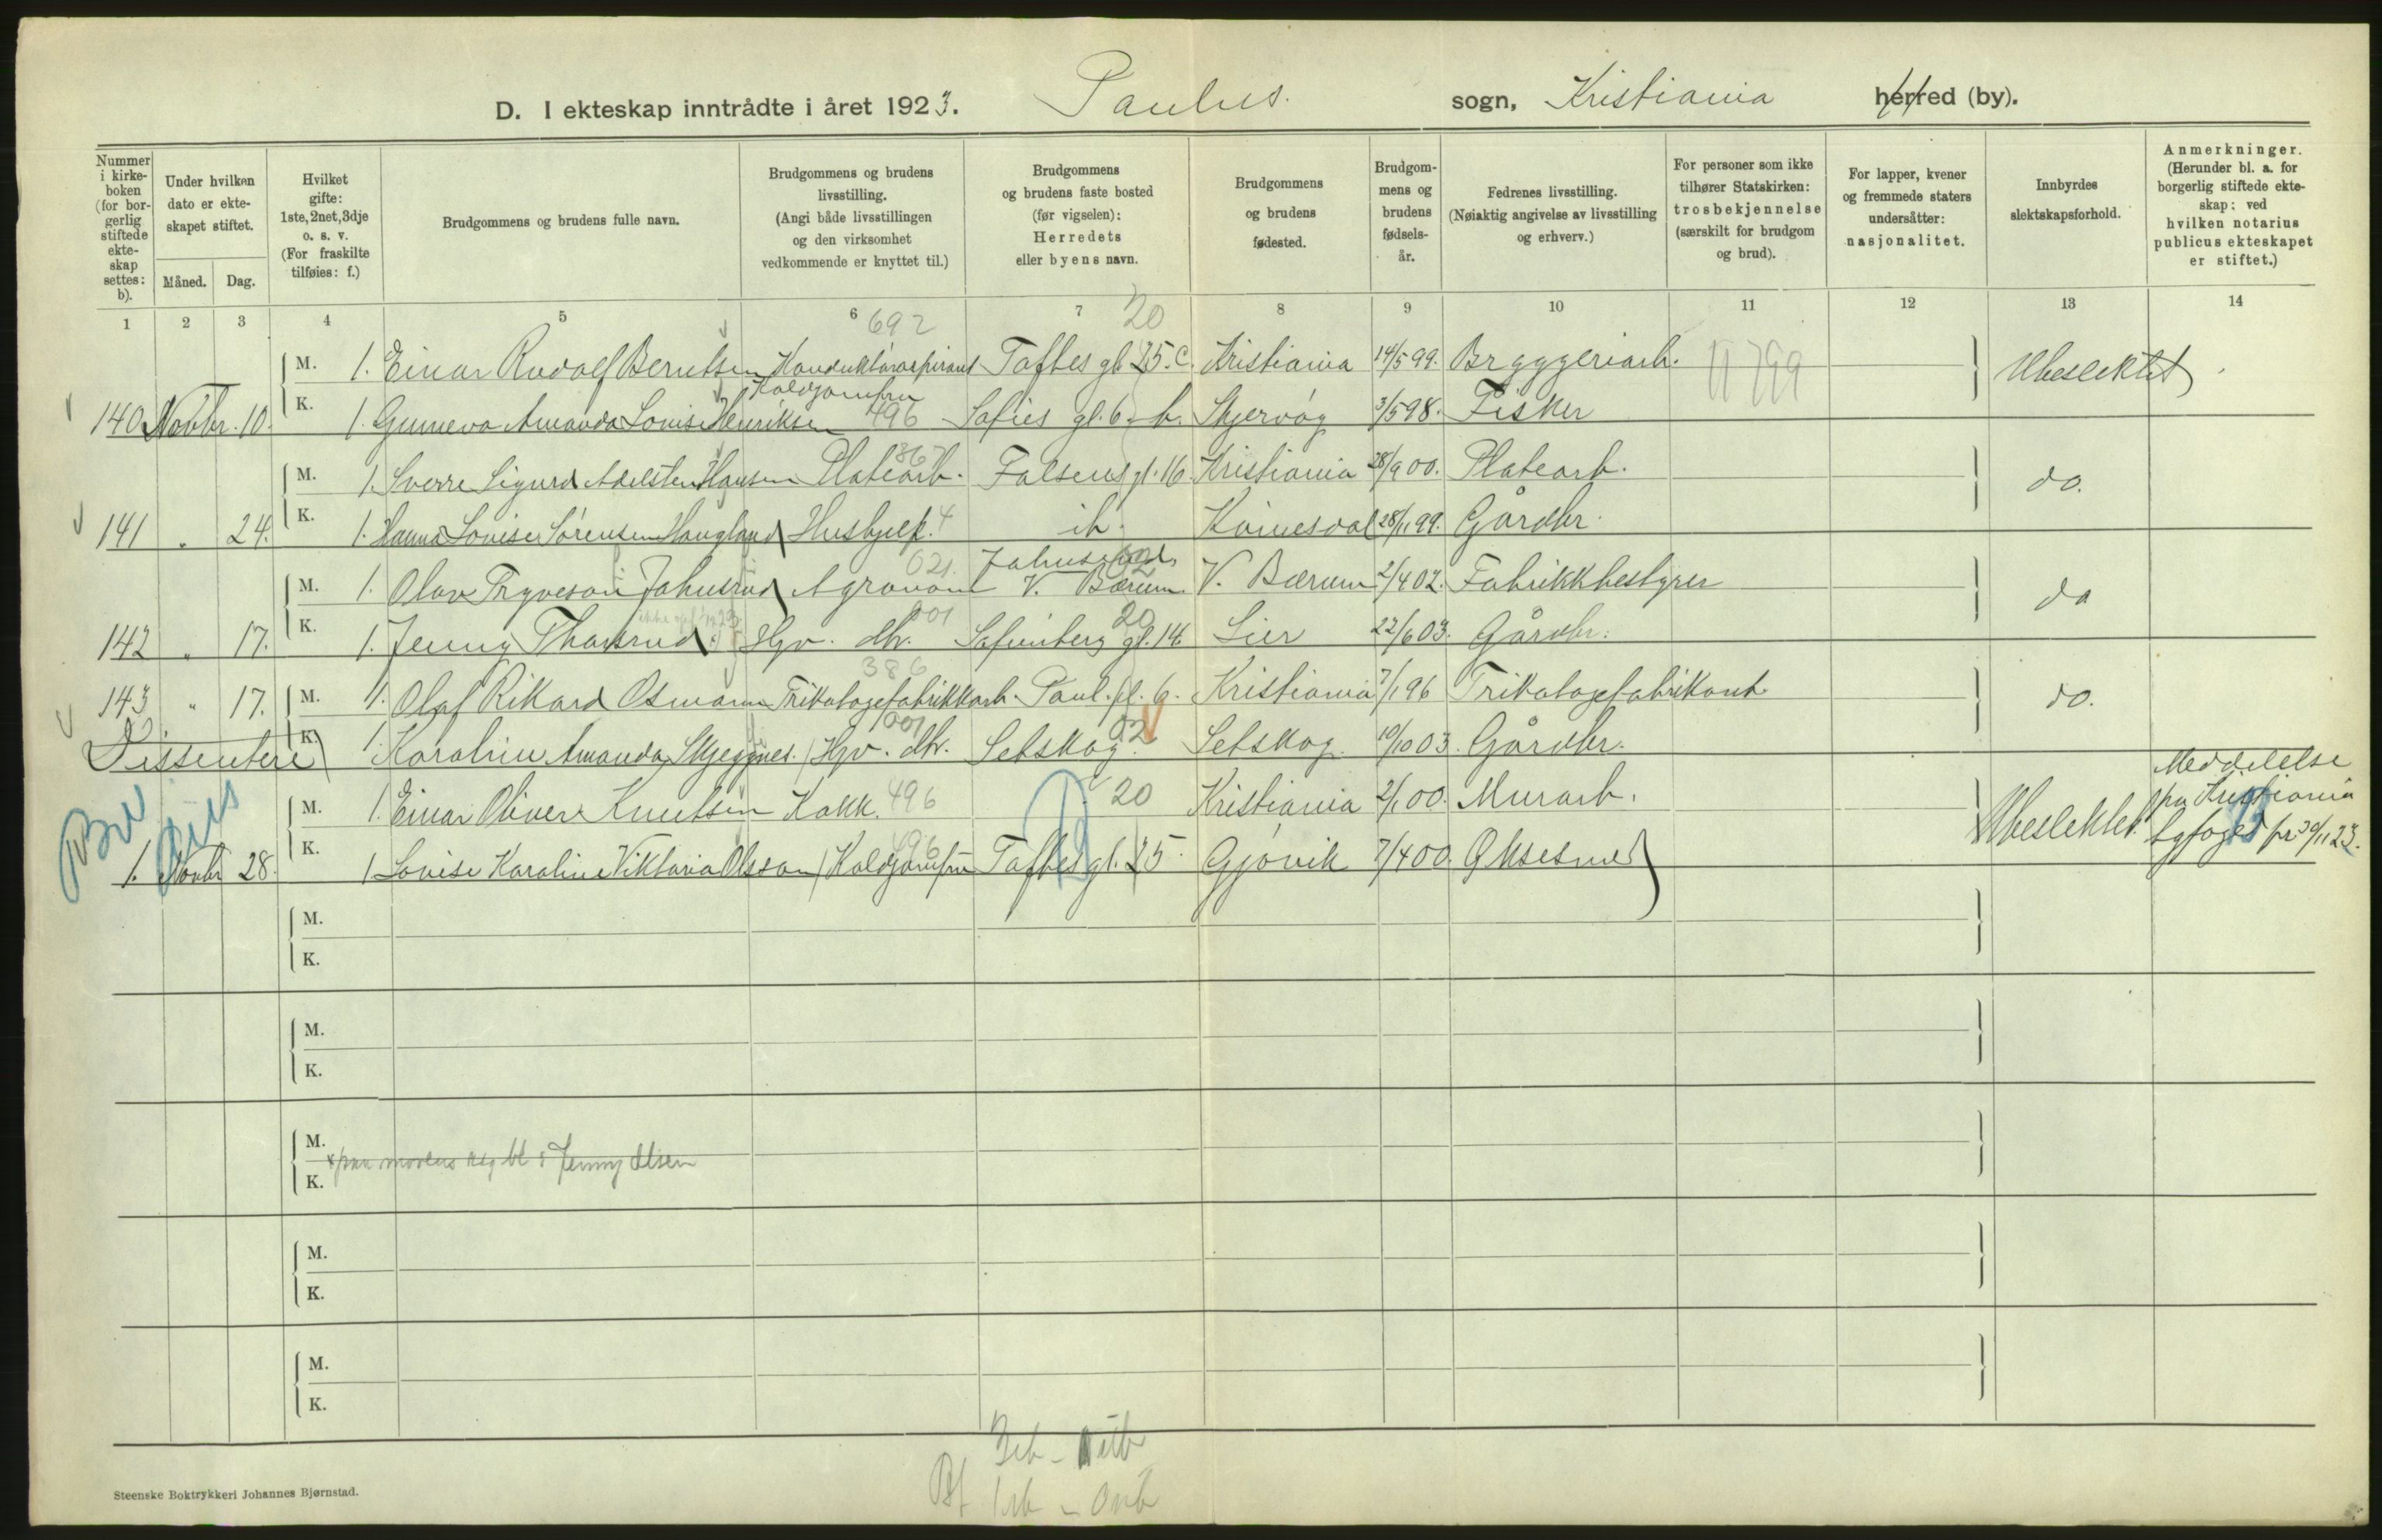 D. I ekteskap inntrådte i året 1923. Paulus. sogn, Kristiania herred (by).
Nummer i kirkeboken (for borgerlig stiftede ekteskap settes: b).
Under hvilken dato er ekteskapet stiftet.
Måned. Dag.
Hvilket gifte: 1ste, 2net, 3dje o. s. v. (For fraskilte tilføies: f.)
Brudgommens og brudens fulle navn.
Brudgommens og brudens livsstilling. (Angi både livsstillingen og den virksomhet vedkommende er knyttet til.)
Brudgommens og brudens faste bosted (før vigselen): Herredets eller byens navn.
Brudgommens og brudens fødested.
Brudgommens og brudens fødselsår.
Fedrenes livsstilling. (Nøiaktig angivelse av livsstilling og erhverv.)
For personer som ikke tilhører Statskirken: trosbekjennelse (særskilt for brudgom og brud).
For lapper, kvener og fremmede staters undersåtter: nasjonalitet.
Innbyrdes slektskapsforhold.
Anmerkninger. (Herunder bl. a. for borgerlig stiftede ekteskap: ved hvilken notarius publicus ekteskapet er stiftet.)
1 2 3 4 5 6 7 8 9 10 11 12 13 14
692 20
M. 1. Einar Rudolf Berntsen Konduktøraspirant Toftes gt. 25.c. Kristiania 14/5 99. Bryggeriarb. Ubeslektet
Koldjomfru
140 Novbr. 10. K. 1. Gunneva Amanda Lovise Henriksen 496 Sofies gt. 6. b. Skjervøy 3/5 98. Fisker
367
M. 1. Sverre Sigurd Adelsten Hansen Platearb. Falsens gt. 16 Kristiania 28/9 00. Platearb. do.
141 " 24. K. 1. Hanna Lovise Sørensen Haugland Hushjelp. 4 ib. Kvinesdal 28/11 99. Gårdbr.
021. Johnsrud
M. 1. Olav Trygveson Johnsrud Agronom V. Bærum. V. Bærum 2/4 02. Fabrikkbestyrer do
001 20
142 " 17. K. 1. Jenny Thorsrud Hgv. dtr. Sofienberg gt. 14 Lier 22/6 03. Gårdbr.
386
143 " 17. M. 1. Olaf Rikard Osmann Trikotagefabrikkarb. Paul. pl. 6. Kristiania 7/1 96 Trikotagefabrikant do.
001 02
Dissentere K. 1. Karoline Amanda Skjeggnes. Hgv. dtr. Setskog. Setskog. 10/10 03. Gårdbr.
M. 1. Einar Oliver Knutsen Kokk. 496 20 Kristiania 2/1 00. Murarb. Ubeslektet. Meddelelse fra Kristiania byfoged pr. 30/11 23.
496
1. Novbr 28. K. 1. Lovise Karoline Viktoria Olsson Koldjomfru Toftes gt. 25. Gjøvik 7/4 00. Øksesmed
M.
K.
M.
K.
M.
K.
M.
K.
M.
K.
Steenske Boktrykkeri Johannes Bjørnstad.